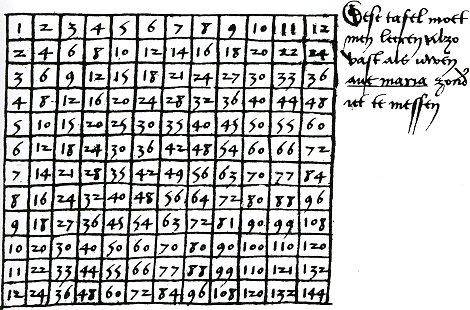 1 2 3 4 5 6 7 8 9 10 11 12
2 4 6 8 10 12 14 16 18 20 22 24
3 6 9 12 15 18 21 24 27 30 33 36
4 8 12 16 20 24 28 32 36 40 44 48
5 10 15 20 25 30 35 40 45 50 55 60
6 12 18 24 30 36 42 48 54 60 66 72
7 14 21 28 35 42 49 56 63 70 77 84
8 16 24 32 40 48 56 64 72 80 88 96
9 18 27 36 45 54 63 72 81 90 99 108
10 20 30 40 50 60 70 80 90 100 110 120
11 22 33 44 55 66 77 88 99 110 121 132
12 24 36 48 60 72 84 96 108 120 132 144
Dese tafel moet
men leeren alzo
vast als uwen
aue maria
te messen